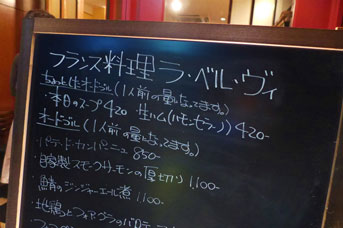 フランス料理 ラ・ベル・ヴィ
ちょっとオードブル(1人前の量になってます。)
・本日のスープ 420 ・生ハム(ハモンセラーノ) 420-
オードブル(1人前の量になってます。)
・パテ・ド・カンパーニュ 850-
・自家製スモークサーモンの厚切り 1,100-
・鯖のジンジャーエール煮 1,100-
・地鶏とフォアグラの